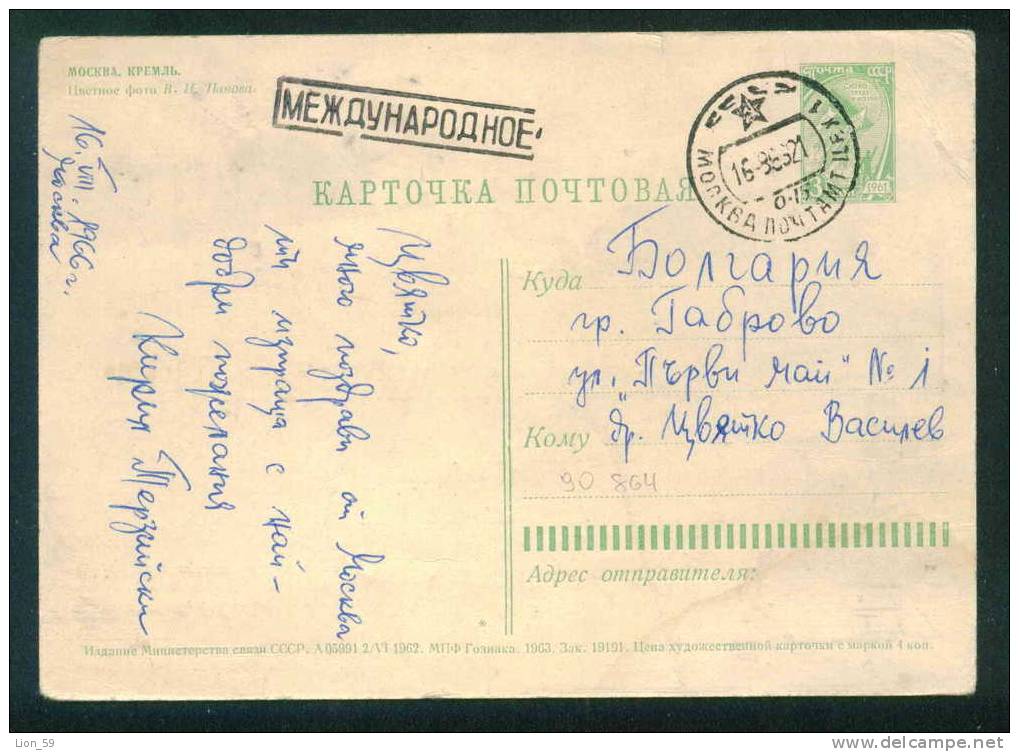 МОСКВА. КРЕМЛЬ.
Цветное фото В. И. Панова.
МЕЖДУНАРОДНОЕ
ПОЧТА СССР
1961
МОСКВА ПОЧТАМТ
КАРТОЧКА ПОЧТОВАЯ
16.VIII.1966 г.
Москва
Цвятко,
много поздрави от Москва
ти изпраща с най-
добри пожелания
Кирил Терзийски
Куда
Болгария
гр. Габрово
ул. „Първи май" № 1
Кому
др. Цвятко Василев
90 864
Адрес отправителя:
Издание Министерства связи СССР. А 05991 2/VI 1962. МПФ Гознака. 1963. Зак. 19191. Цена художественной карточки с маркой 4 коп.
Lion_59
delcampe.net